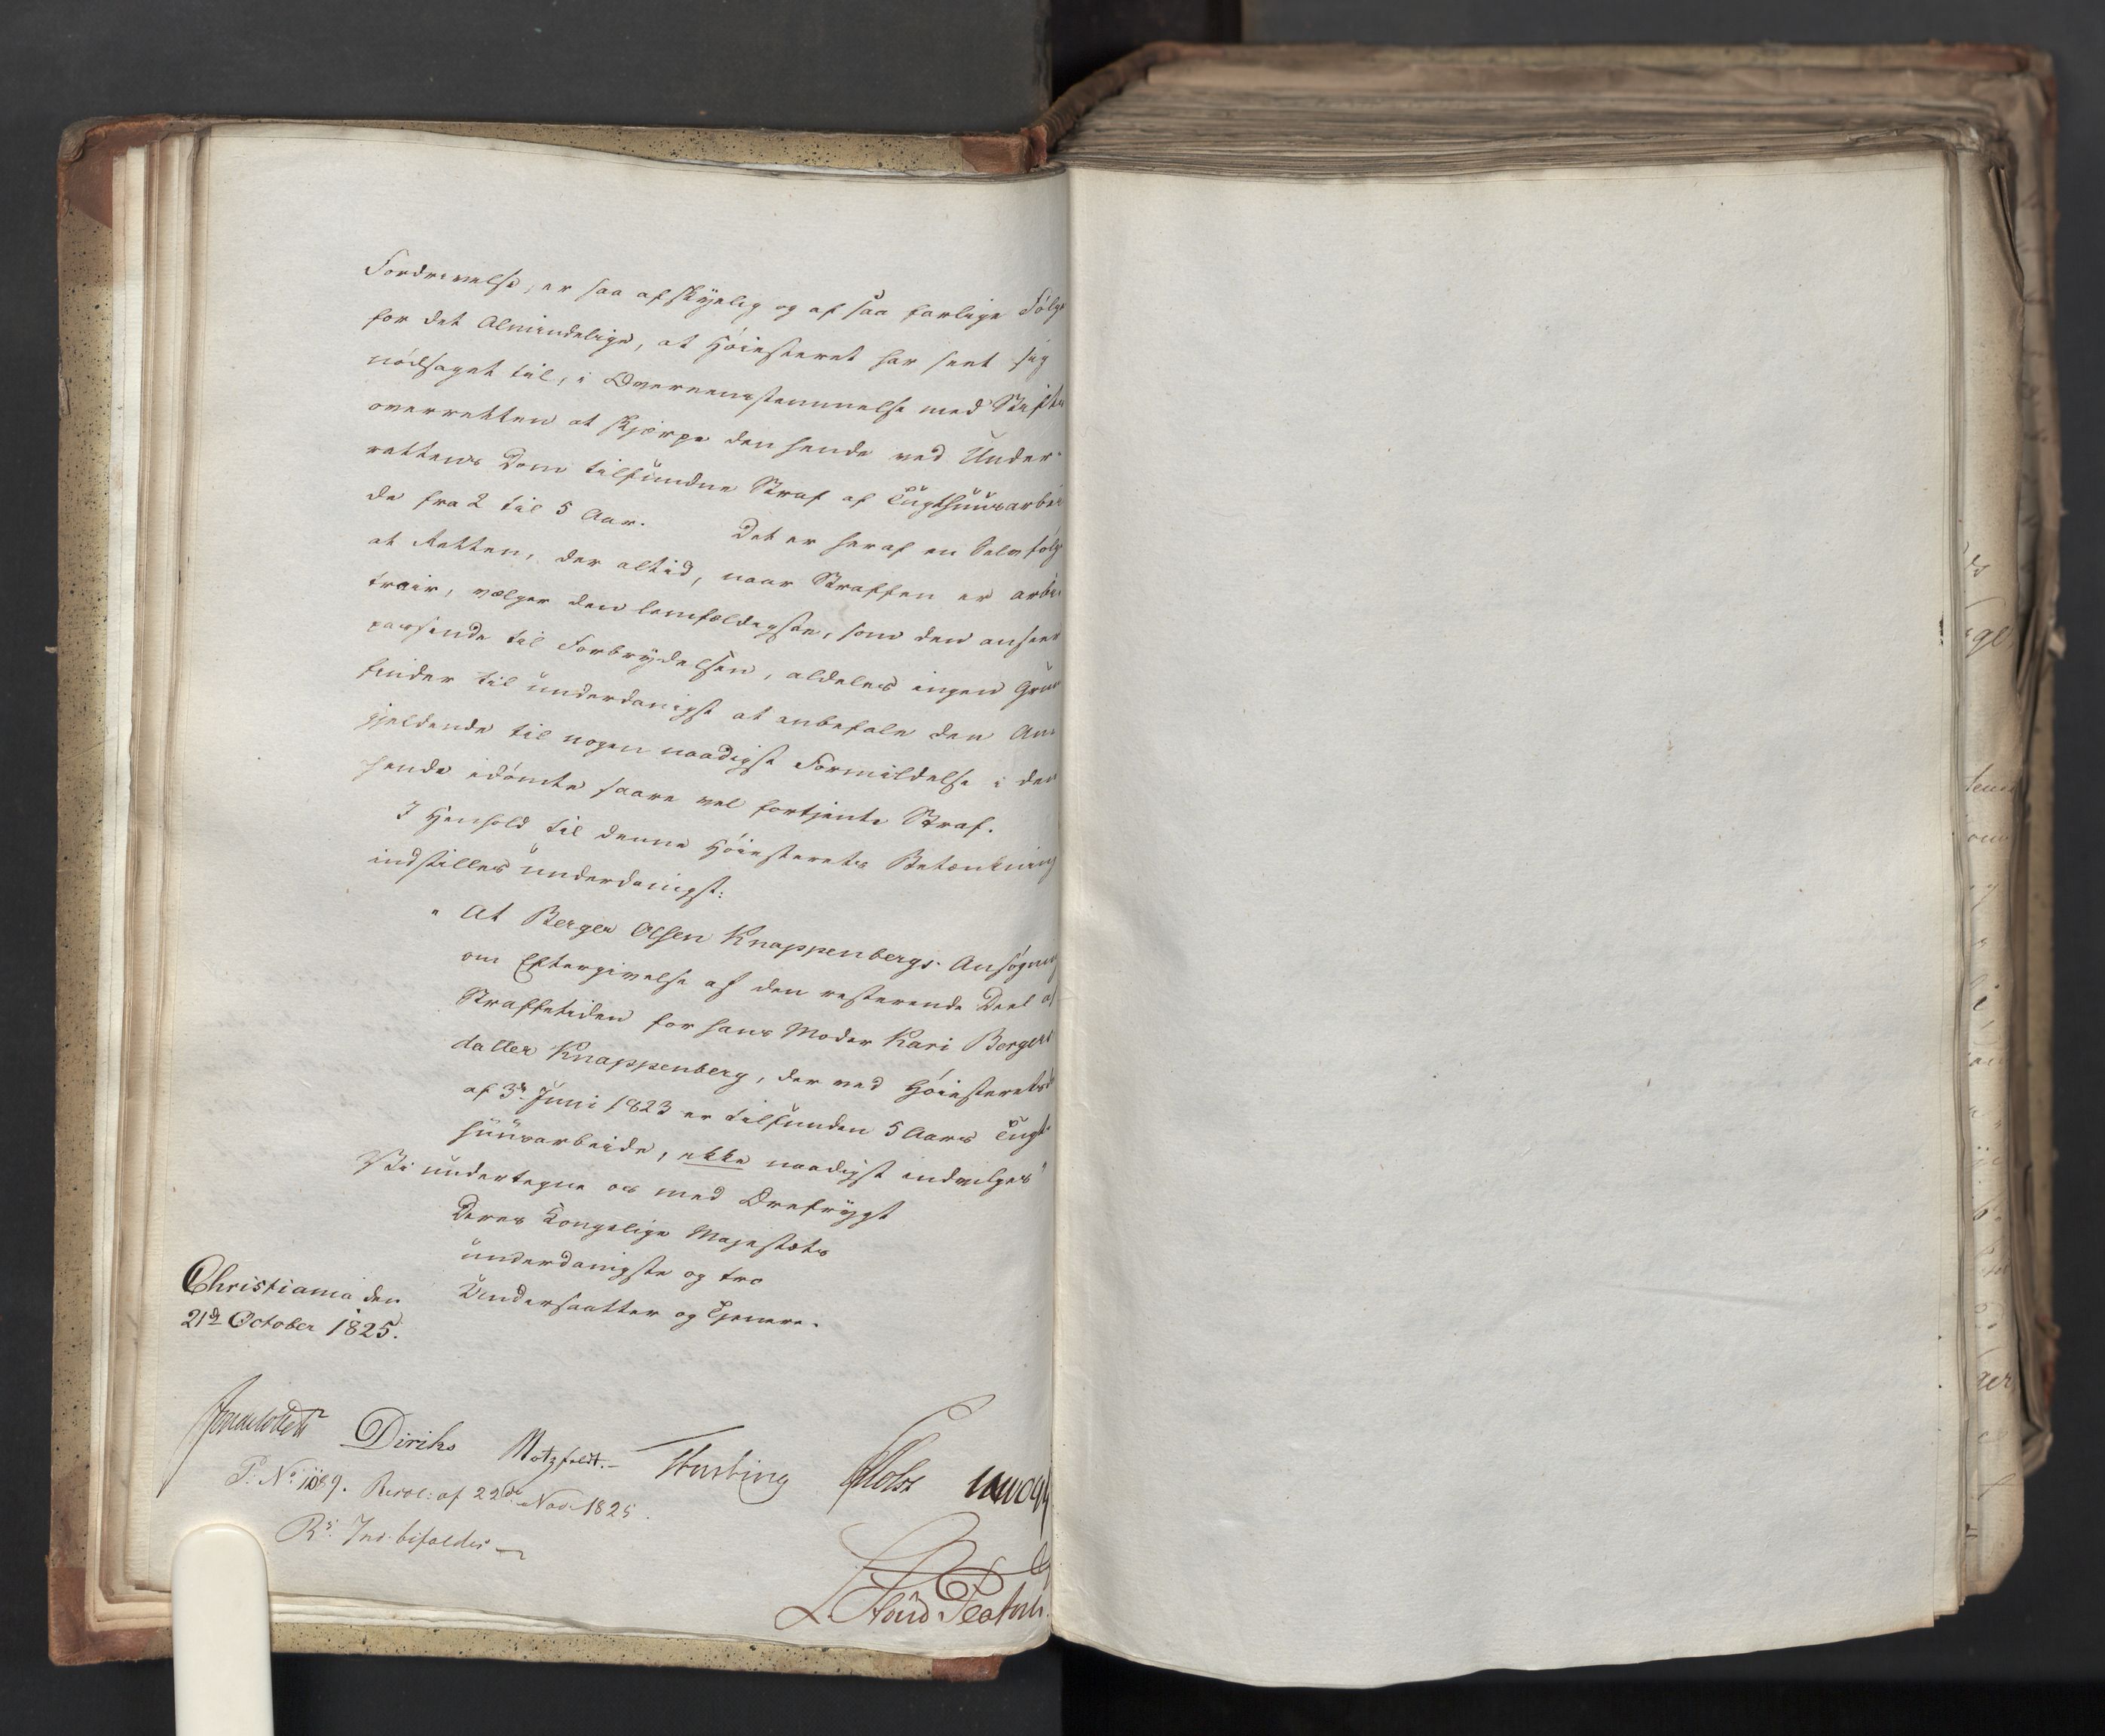 Fordrivelse, er saa afskyelig og af saa farlige Følg
for det Almindelige, at Høiesteret har seet sig
nødsaget til, i Overeensstemmelse med Stifts
overretten at skjærpe den hende ved Under-
rettens Dom tilfundne Straf af Tugthuusarbei
de fra 2 til 5 Aar. Det er heraf en Selvfølg
at Retten, der altid, naar Straffen er arbi-
trair, vælger den lemfældigste, som den anseer
passende til Forbrydelsen, aldeles ingen Grun
finder til underdanigst at anbefale den An-
gjeldende til nogen naadigst Formildelse i den
hende idømte saare vel fortjente Straf.
I Henhold til denne Høiesterets Betænkning
indstilles underdanigst:
" At Berger Olsen Knappenbergs Ansøgning
om Eftergivelse af den resterende Deel af
Straffetiden for hans Moder Kari Bergers
datter Knappenberg, der ved Høiesteretsd
af 3die Juni 1823 er tilfunden 5 Aars Tugt-
huusarbeide, ikke naadigst indvilges"
Vi undertegne os med Ærefrygt
Deres Kongelige Majestæts
underdanigste og tro
Undersaatter og Tjenere.
Christiania den
21de October 1825.
Diriks Motzfeldt.
P. No 1089. Resol: af 22de Nov 1825.
Rs: Ind. bifaldes